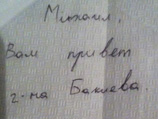 Михаил,
Вам привет
г-на Бакиева.